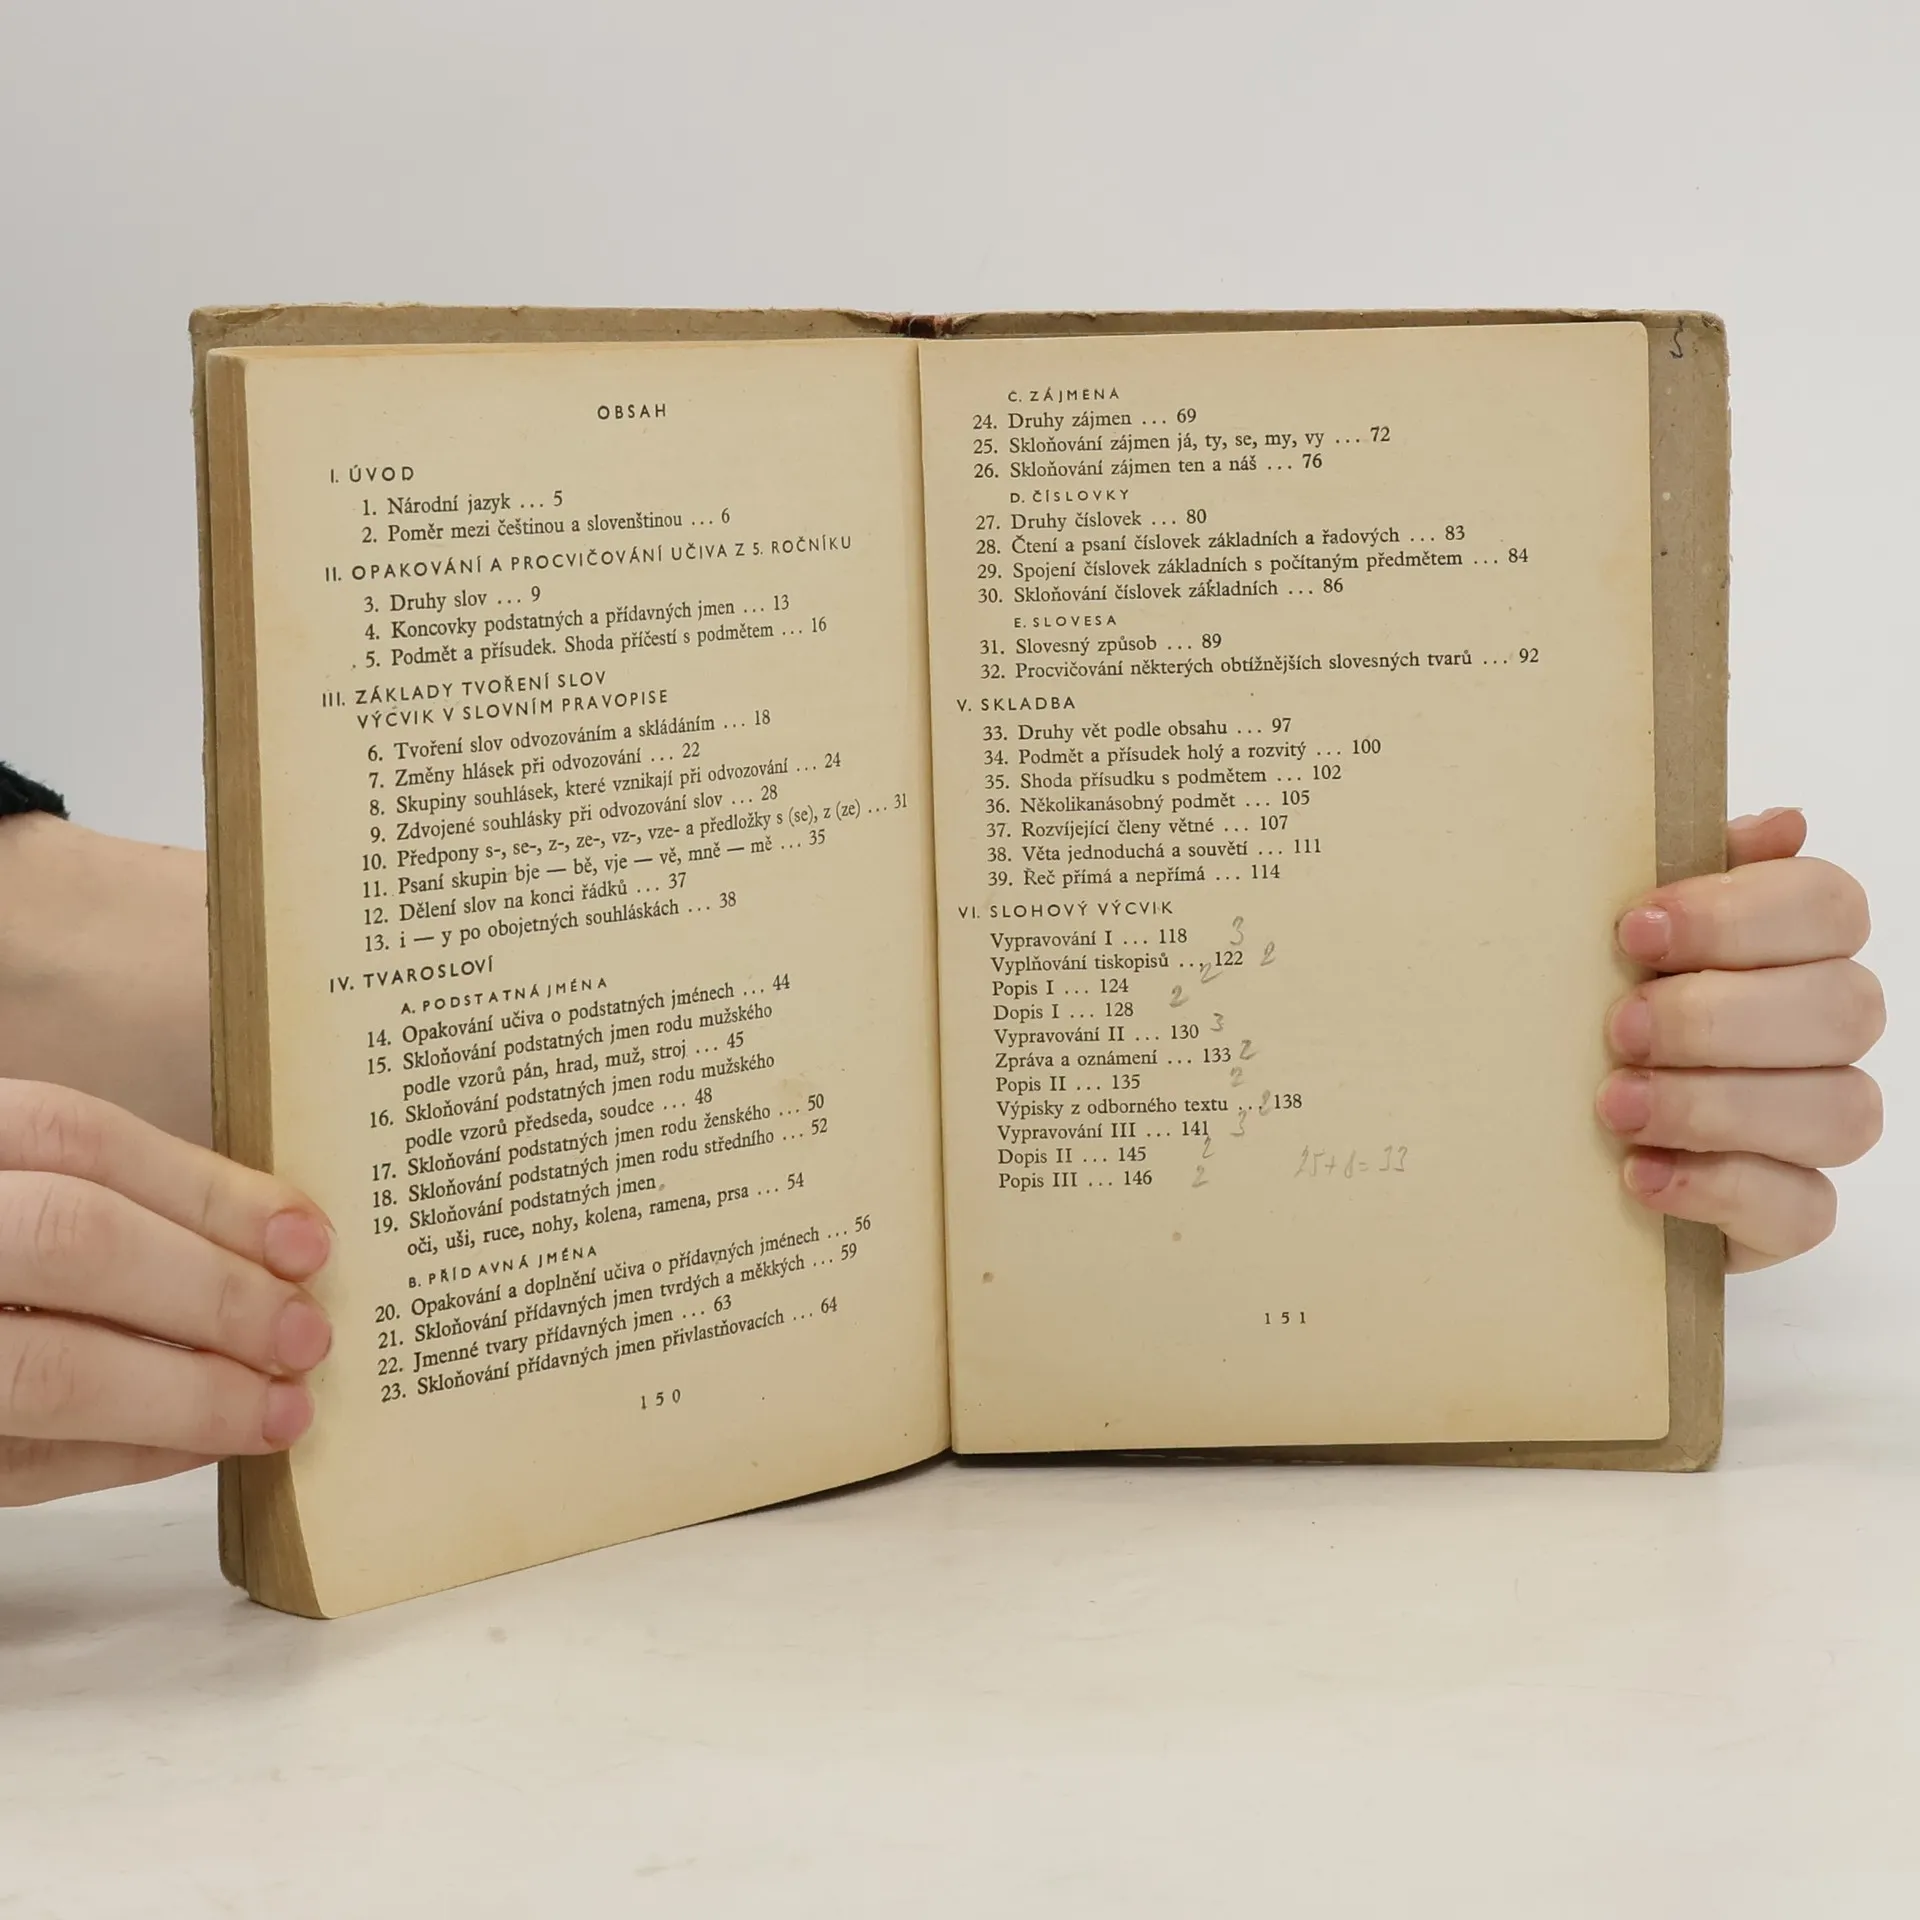 OBSAH
I. ÚVOD
1. Národní jazyk ... 5
2. Poměr mezi češtinou a slovenštinou ... 6
II. OPAKOVÁNÍ A PROCVIČOVÁNÍ UČIVA Z 5. ROČNÍKU
3. Druhy slov ... 9
4. Koncovky podstatných a přídavných jmen ... 13
5. Podmět a přísudek. Shoda příčestí s podmětem ... 16
III. ZÁKLADY TVOŘENÍ SLOV
VÝCVIK V SLOVNÍM PRAVOPISE
6. Tvoření slov odvozováním a skládáním ... 18
7. Změny hlásek při odvozování ... 22
8. Skupiny souhlásek, které vznikají při odvozování ... 24
9. Zdvojené souhlásky při odvozování slov ... 28
10. Předpony s-, se-, z-, ze-, vz-, vze- a předložky s (se), z (ze) ... 31
11. Psaní skupin bje — bě, vje — vě, mně — mě ... 35
12. Dělení slov na konci řádků ... 37
13. i — y po obojetných souhláskách ... 38
IV. TVAROSLOVÍ
A. PODSTATNÁ JMÉNA
14. Opakování učiva o podstatných jménech ... 44
15. Skloňování podstatných jmen rodu mužského
podle vzorů pán, hrad, muž, stroj ... 45
16. Skloňování podstatných jmen rodu mužského
podle vzorů předseda, soudce ... 48
17. Skloňování podstatných jmen rodu ženského ... 50
18. Skloňování podstatných jmen rodu středního ... 52
19. Skloňování podstatných jmen
oči, uši, ruce, nohy, kolena, ramena, prsa ... 54
B. PŘÍDAVNÁ JMÉNA
20. Opakování a doplnění učiva o přídavných jménech ... 56
21. Skloňování přídavných jmen tvrdých a měkkých ... 59
22. Jmenné tvary přídavných jmen ... 63
23. Skloňování přídavných jmen přivlastňovacích ... 64
150
5.
Č. ZÁJMENA
24. Druhy zájmen ... 69
25. Skloňování zájmen já, ty, se, my, vy ... 72
26. Skloňování zájmen ten a náš ... 76
D. ČÍSLOVKY
27. Druhy číslovek ... 80
28. Čtení a psaní číslovek základních a řadových ... 83
29. Spojení číslovek základních s počítaným předmětem ... 84
30. Skloňování číslovek základních ... 86
E. SLOVESA
31. Slovesný způsob ... 89
32. Procvičování některých obtížnějších slovesných tvarů ... 92
V. SKLADBA
33. Druhy vět podle obsahu ... 97
34. Podmět a přísudek holý a rozvitý ... 100
35. Shoda přísudku s podmětem ... 102
36. Několikanásobný podmět ... 105
37. Rozvíjející členy větné ... 107
38. Věta jednoduchá a souvětí ... 111
39. Řeč přímá a nepřímá ... 114
VI. SLOHOVÝ VÝCVIK
Vypravování I ... 118 3
Vyplňování tiskopisů ... 122 2
Popis I ... 124 2
Dopis I ... 128 2
Vypravování II ... 130 3
Zpráva a oznámení ... 133 2
Popis II ... 135 2
Výpisky z odborného textu ... 138 2
Vypravování III ... 141 3
Dopis II ... 145 2
Popis III ... 146 2
25+8=33
151